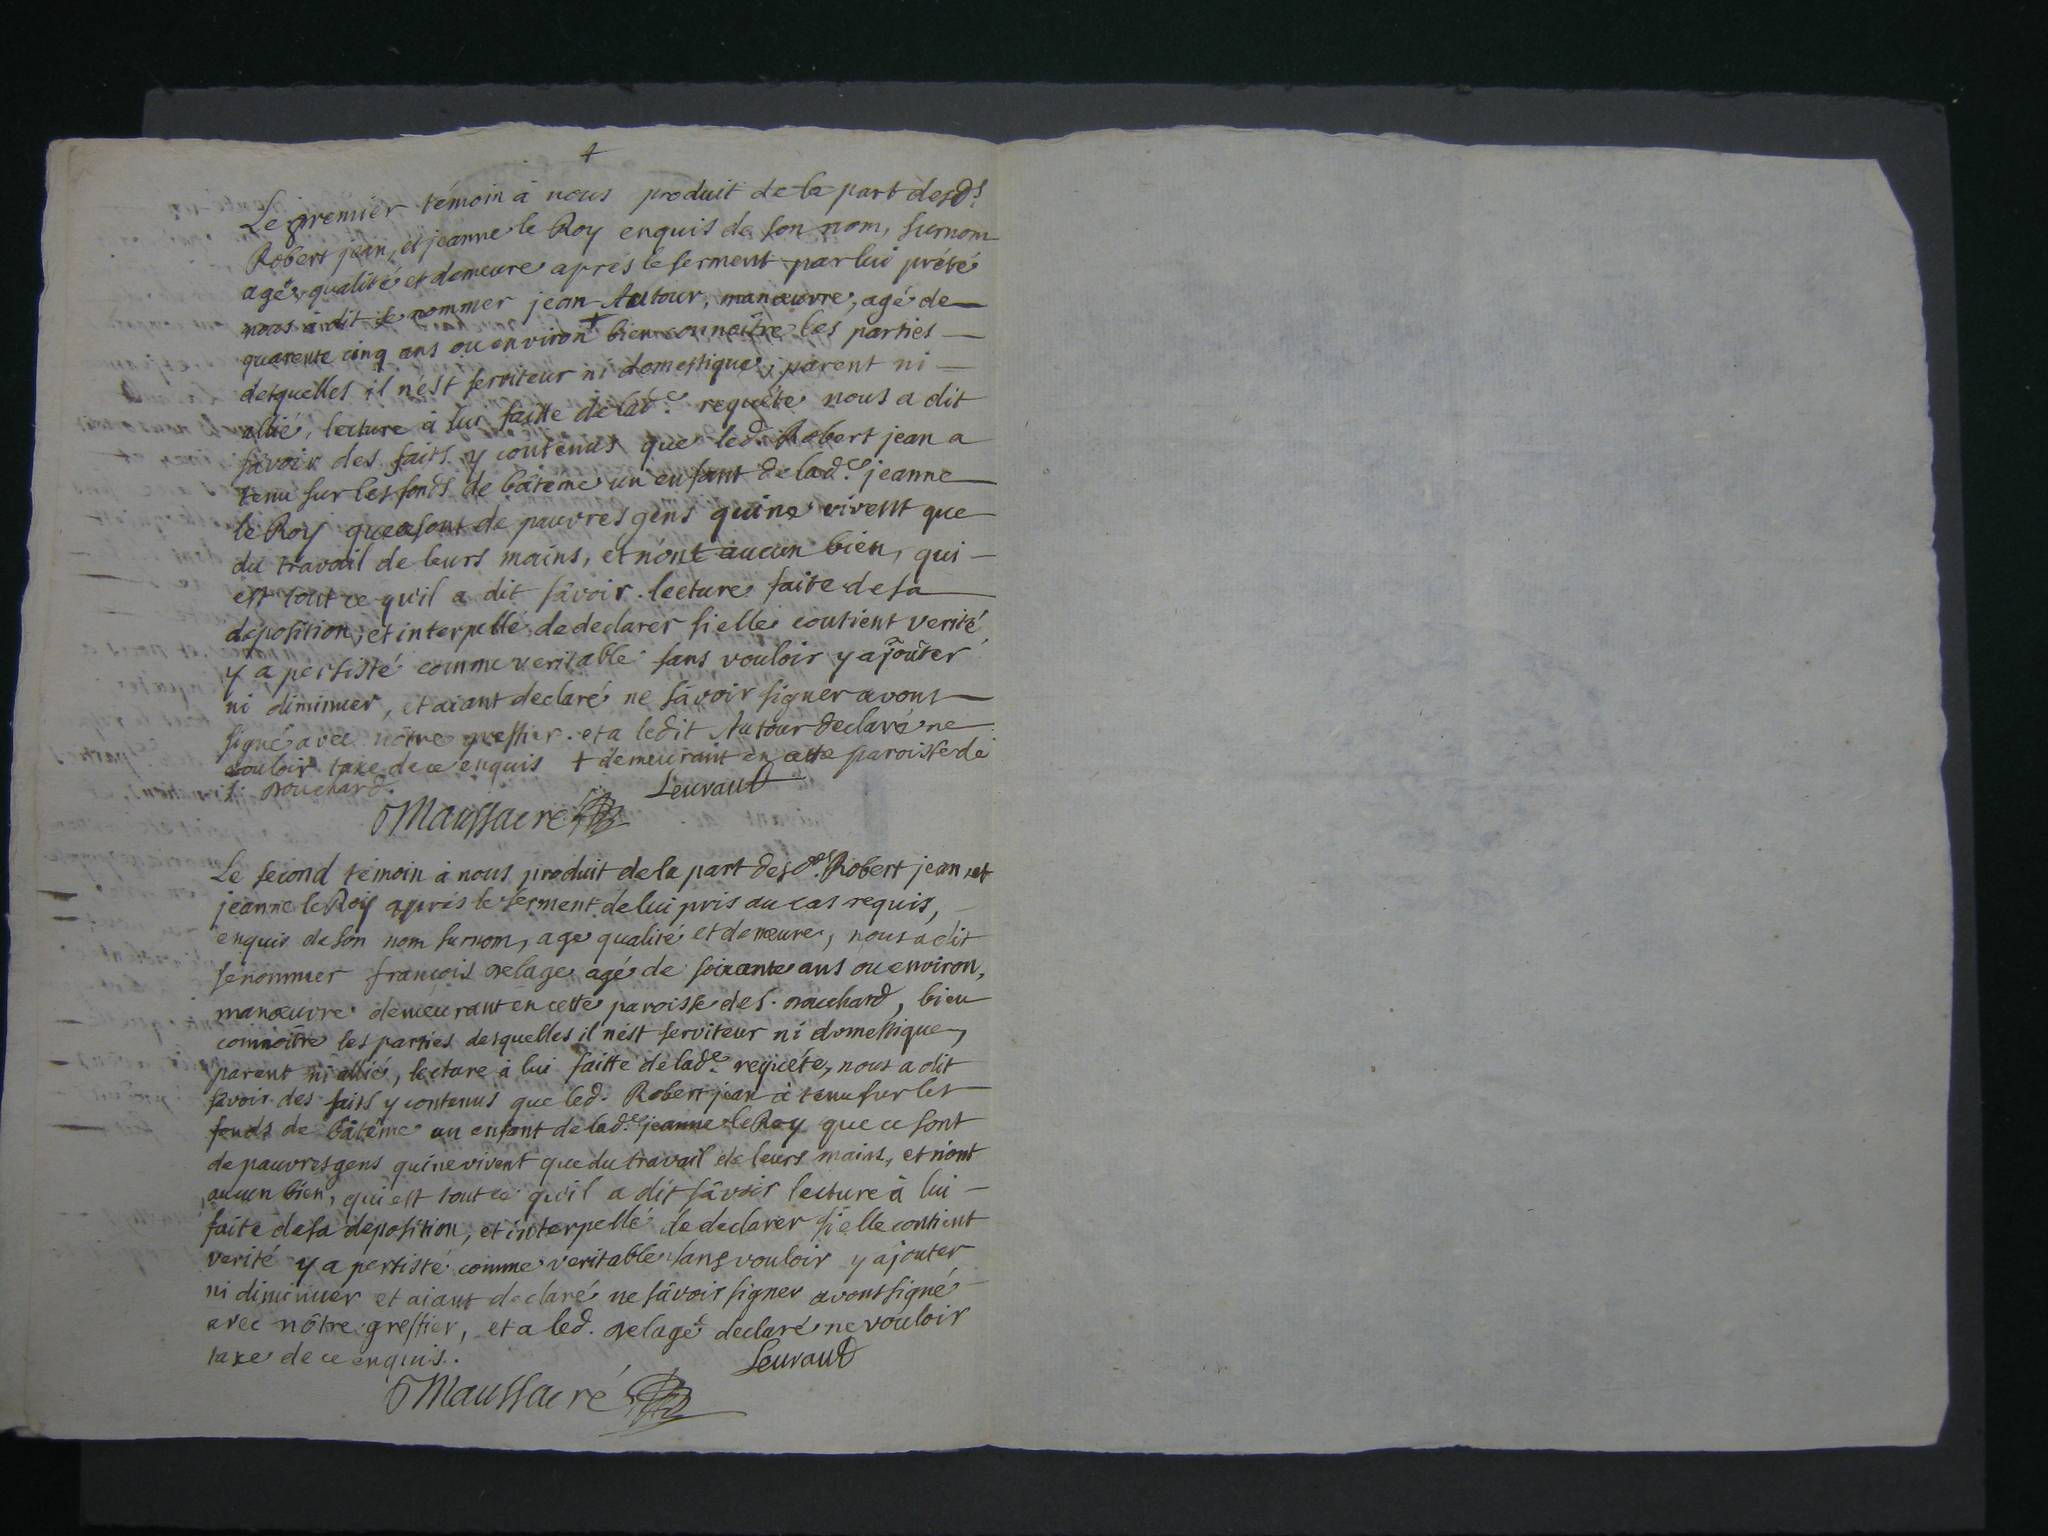 +
Le premier témoin à nous produit de la part desd.s
Robert jean, et jeanne le Roy enquis de son nom, surnom
age, qualité et demeure aprés le serment par lui prété
nous à dit se nommer jean Autour, manœuvre, agé de
quarente cinq ans ou environ + bien connoitre les parties
desquelles il n'est serviteur ni domestique, parent ni
allié, lecture à lui faitte de lad.e requéte nous a dit
savoir des faits y contenus que led. Robert jean a
tenu sur les fonds de bâtême un enfant de lad.e jeanne
le Roy que ce sont de pauvres gens qui ne vivent que
du travail de leurs mains, et n'ont aucun bien, qui
est tout ce qu'il a dit sâvoir. lecture faite de sa
déposition, et interpellé de declarer si elle contient verité
y a persisté comme veritable sans vouloir y ajoûter
ni diminuer, et aiant declaré ne sâvoir signer avons
signé avec nôtre greffier. et a ledit Autour declaré ne
vouloir taxe de ce enquis + demeurant en cette paroisse de
s. Bouchard.
Leuraud
Maussacré
Le second témoin à nous produit de la part desd.es Robert jean, et
jeanne le Roy aprés le serment de lui pris au cas requis,
enquis de son nom surnom, age qualité et demeure, nous a dit
se nommer françois Delage agé de soixante ans ou environ,
manœuvre demeurant en cette paroisse de s. Bouchard, bien
connoître les parties desquelles il n'est serviteur ni domestique,
parent ni allié, lecture à lui faitte de lad.e requéte, nous a dit
savoir des faits y contenus que led. Robert jean à tenu sur les
fonds de bâtême un enfant de lad.e jeanne le Roy que ce sont
de pauvres gens qui ne vivent que du travail de leurs mains, et n'ont
aucun bien, qui est tout ce qu'il a dit sâvoir lecture à lui
faite de sa déposition, et interpellé de declarer si elle contient
verité y a persisté comme veritable sans vouloir y ajouter
ni diminuer et aiant declaré ne sâvoir signer avons signé
avec nôtre greffier, et a led. Delage declaré ne vouloir
taxe de ce enquis.
Leuraud
Maussacré